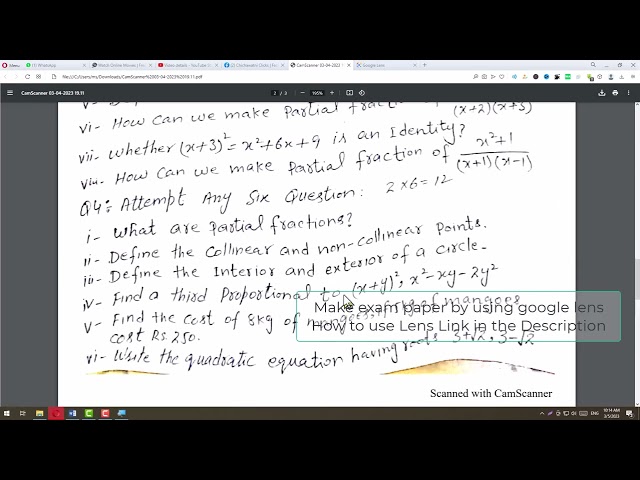 (1) WhatsApp
Watch Online Movies | Fo
Video details - YouTube S
CamScanner 03-04-2023
Google Lens
CamScanner 03-04-2023 19.11
2 / 3
195%
vi- How Can we make Partial fraction
(x+2)(x+3)
vii- whether (x+3)² = x²+6x+9 is an Identity?
viii- How Can we make Partial fraction of x²+1
(x+1)(x-1)
Q4: Attempt Any Six Question: 2×6=12
i- What are Partial fractions?
ii- Define the Collinear and non-collinear Points.
iii- Define the Interior and exterior of a circle-
iv- Find a third Proportional to (x+y)², x²-xy-2y²
v- Find the cost of 8kg of mangoes, of mangoes
cost Rs.250.
Make exam paper by using google lens
How to use Lens Link in the Description
vi- Write the quadratic equation having roots 3+√2, 3-√2
Scanned with CamScanner
ENG
10:14 AM
3/5/2023